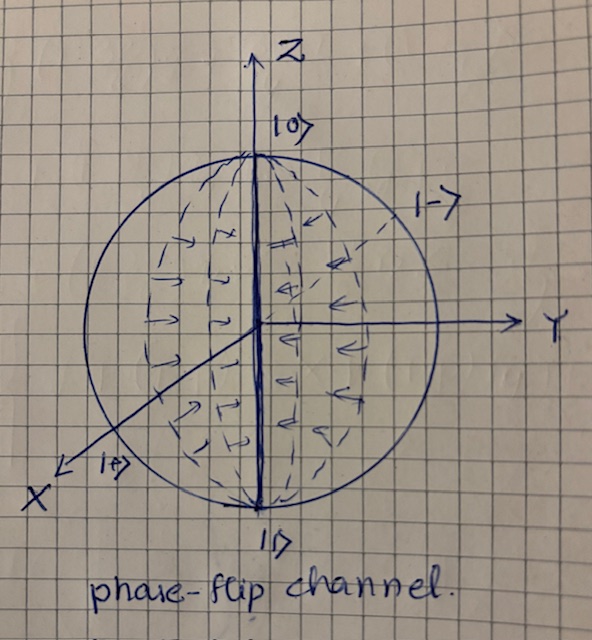 Z
|0⟩
|−⟩
Y
|+⟩
X
|1⟩
phase-flip channel.